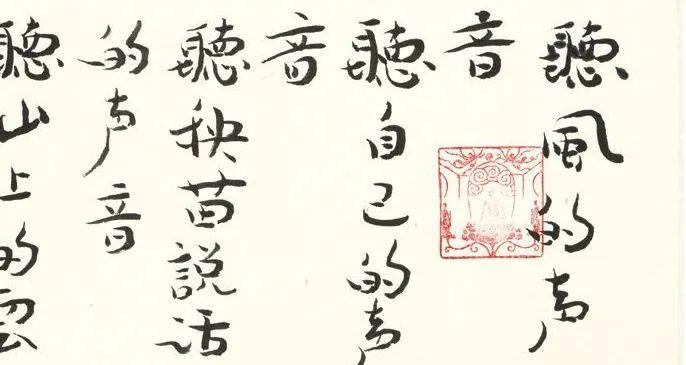 聽風的声
音
聽自己的声
音
聽秧苗説話
的声音
聽山上的雲